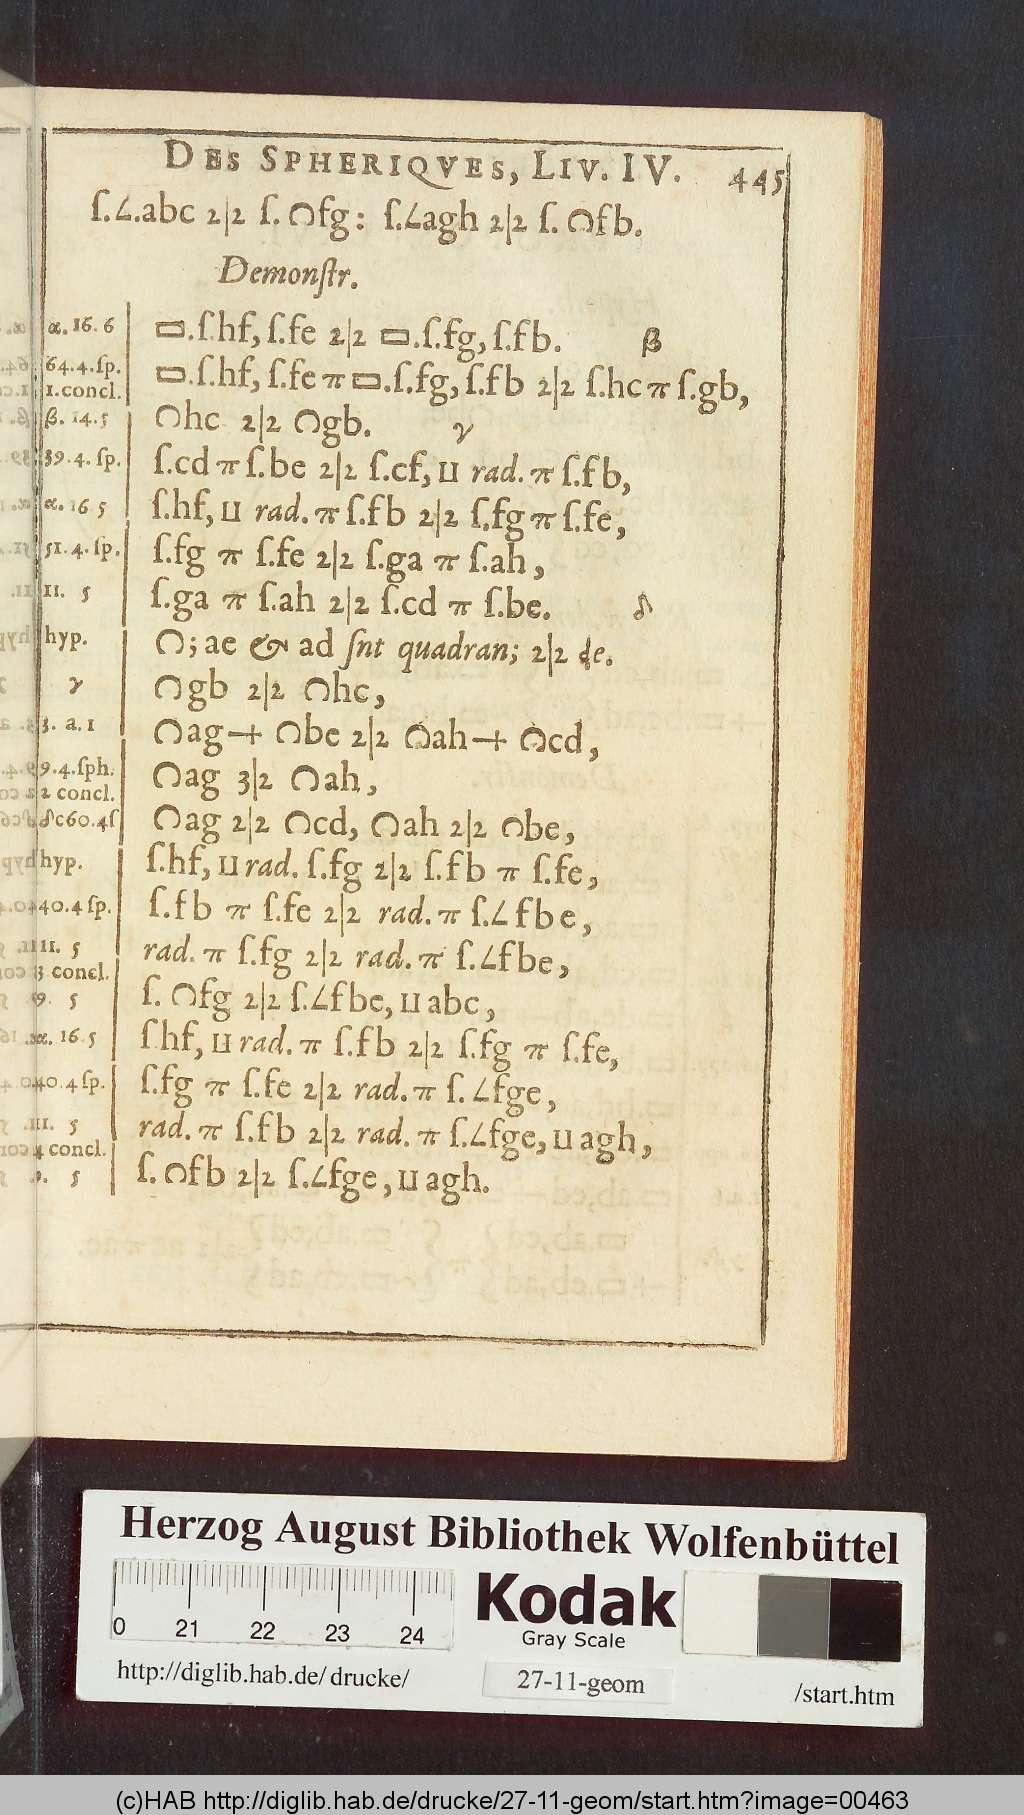 DES SPHERIQVES, LIV. IV. 445
ſ.∠.abc 2|2 ſ. ∩fg: ſ.∠agh 2|2 ſ. ∩fb.
Demonſtr.
α. 16. 6 ▭.ſ.hf, ſ.fe 2|2 ▭.ſ.fg, ſ.fb. β
64.4.ſp. ▭.ſ.hf, ſ.fe π ▭.ſ.fg, ſ.fb 2|2 ſ.hc π ſ.gb,
1.concl.
β. 14.5 ∩hc 2|2 ∩gb. γ
39.4.ſp. ſ.cd π ſ.be 2|2 ſ.cf, ⊔ rad. π ſ.fb,
α. 16 5 ſ.hf, ⊔ rad. π ſ.fb 2|2 ſ.fg π ſ.fe,
51.4.ſp. ſ.fg π ſ.fe 2|2 ſ.ga π ſ.ah,
11. 5 ſ.ga π ſ.ah 2|2 ſ.cd π ſ.be. δ
hyp. ∩; ae & ad ſnt quadran; 2|2 de.
γ ∩gb 2|2 ∩hc,
3. a. 1 ∩ag+ ∩be 2|2 ∩ah+ ∩cd,
9.4.ſph. ∩ag 3|2 ∩ah,
2 concl.
δc60.4ſ ∩ag 2|2 ∩cd, ∩ah 2|2 ∩be,
hyp. ſ.hf, ⊔ rad. ſ.fg 2|2 ſ.fb π ſ.fe,
40.4 ſp. ſ.fb π ſ.fe 2|2 rad. π ſ.∠fbe,
11. 5 rad. π ſ.fg 2|2 rad. π ſ.∠fbe,
3 concl.
9. 5 ſ. ∩fg 2|2 ſ.∠fbe, ⊔ abc,
α. 16.5 ſ.hf, ⊔ rad. π ſ.fb 2|2 ſ.fg π ſ.fe,
40.4 ſp. ſ.fg π ſ.fe 2|2 rad. π ſ.∠fge,
11. 5 rad. π ſ.fb 2|2 rad. π ſ.∠fge, ⊔ agh,
4 concl.
9. 5 ſ. ∩fb 2|2 ſ.∠fge, ⊔ agh.
Herzog August Bibliothek Wolfenbüttel
0 21 22 23 24
Kodak
Gray Scale
http://diglib.hab.de/ drucke/ 27-11-geom /start.htm
(c)HAB http://diglib.hab.de/drucke/27-11-geom/start.htm?image=00463